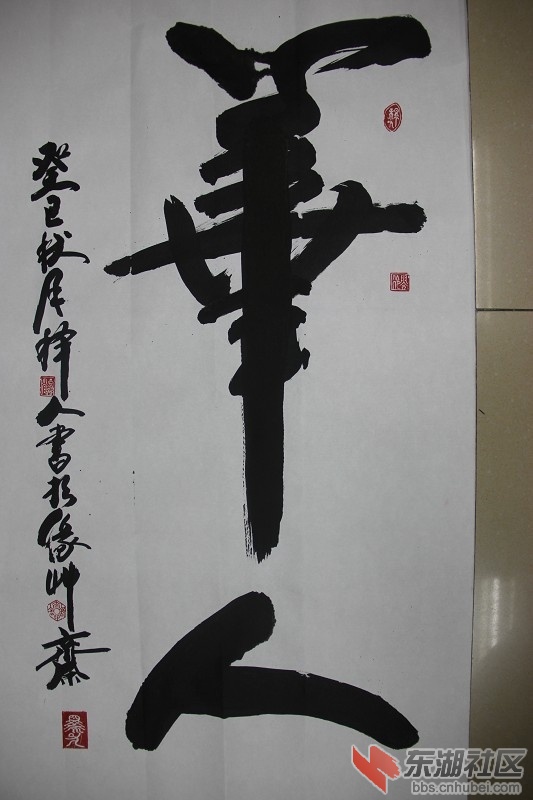 華
人
癸巳秋月擇人書於緣艸齋
东湖社区
bbs.cnhubei.com